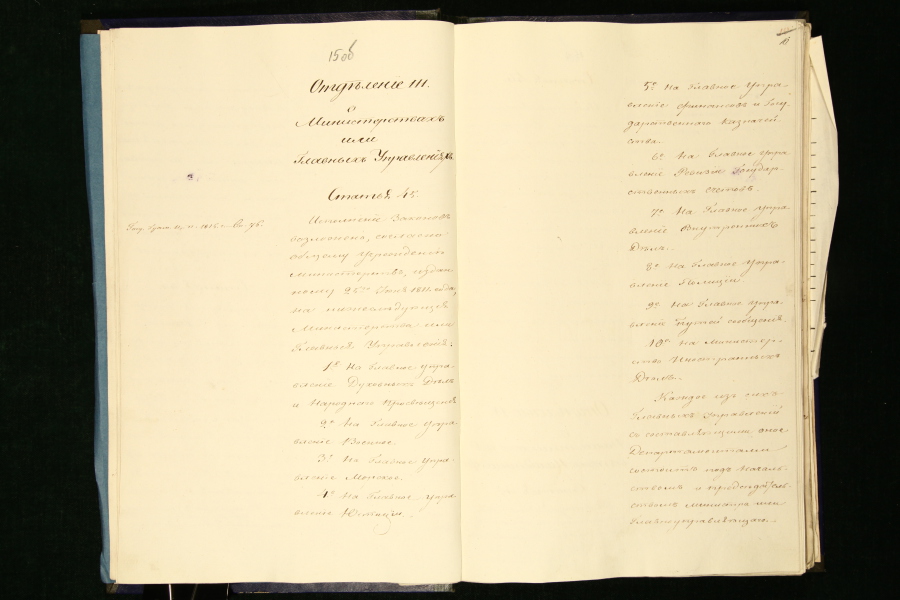 Отдѣленіе III.
о
Министерствахъ
или
Главныхъ Управленіяхъ.
Статья 45.
Исполненіе Законовъ
возложено, согласно
общему учрежденію
министерствъ, изданному
ному 25го Іюня 1811 года,
на нижеслѣдующія
Министерства или
Главныя Управленія:
1е На Главное управ-
вленіе Духовныхъ Дѣлъ
и Народнаго Просвѣщенія
2е На Главное упра-
вленіе Военное.
3е На Главное Упра-
вленіе Морское.
4е На Главное упра-
вленіе Юстиціи.
5е На Главное Упра-
вленіе финансовъ и Госу-
дарственнаго Казначей-
ства.
6е На Главное упра-
вленіе Ревизіи Государ-
ственныхъ счетовъ.
7е На Главное упра-
вленіе Внутреннихъ
Дѣлъ.
8е На Главное Упра-
вленіе Полиціи.
9е На Главное упра-
вленіе Путей сообщенія.
10е На Министер-
ство Иностранныхъ
Дѣлъ.
Каждое изъ сихъ
Главныхъ Управленій
съ составляющими оное
Департаментами
состоитъ подъ Началь-
ствомъ и предсѣдатель-
ствомъ министра или
Главноуправляющаго.